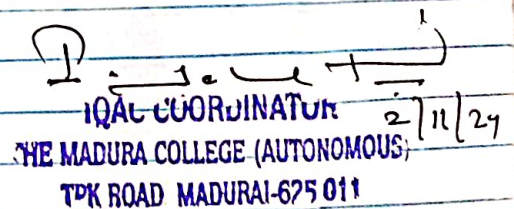 2/11/24
IQAC COORDINATOR
THE MADURA COLLEGE (AUTONOMOUS)
TPK ROAD MADURAI-625 011